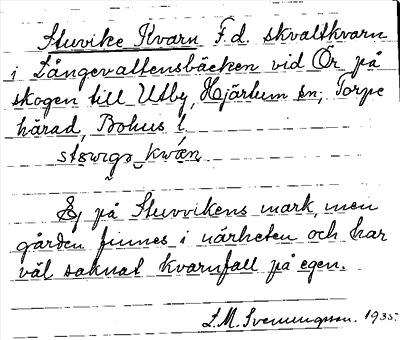 Stuvike Kvarn F.d. skvaltkvarn
i Långevattensbäcken vid Ör på
skogen till Utby, Hjärtum sn, Torpe
härad, Bohus l.
Ej på Stuvvikens mark, men
gården finnes i närheten och har
väl saknat kvarnfall på egen.
L.M. Svenungsson. 1935.